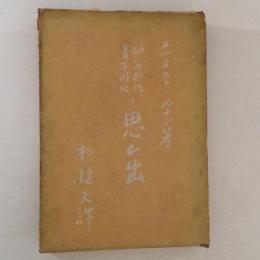 エルネスト・ルナン著
幼年時代
青年時代
の思ひ出
杉捷夫譯